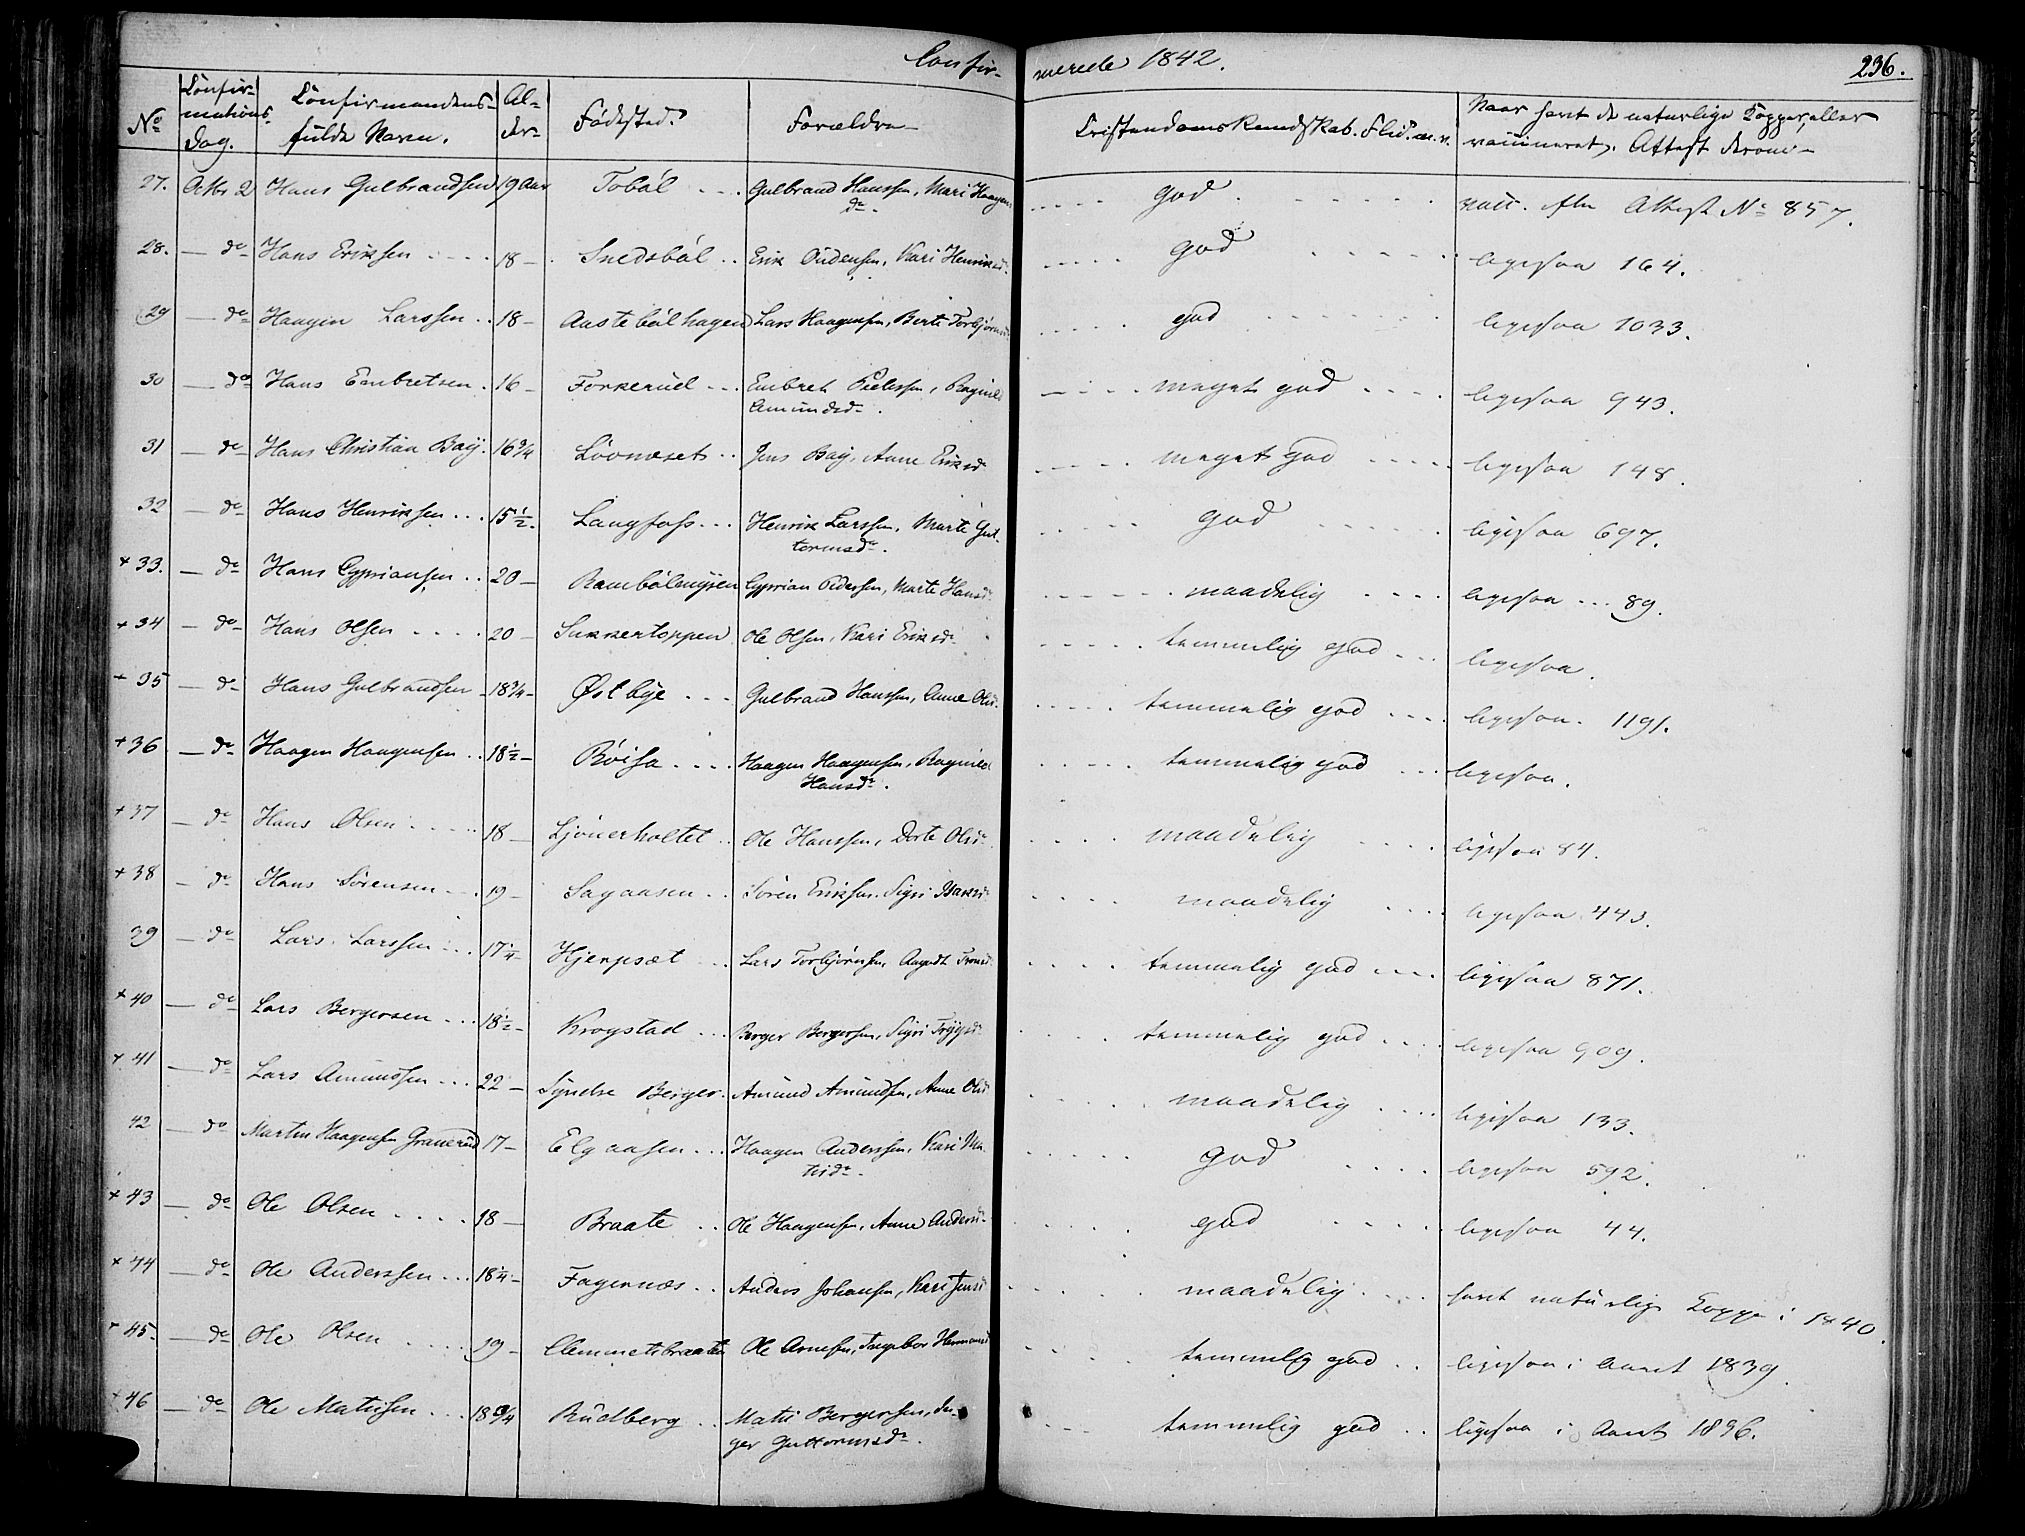 Confirmerede 1842. 236.
No Confirmations Dag. Confirmandens fulde Navn. Alder Fødested. Forældre Cristendoms Kundskab. Flid. m. v. Naar havt de naturlige Kopper, eller vaccineret, Attest derom
27. Octbr 2 Hans Gulbrandsen 19 Aar Tobøl Gulbrand Hanssen, Mari Haagensda. god vacc. efter Attest No 857.
28. — do Hans Eriksen 18 Snedsbøl Erik Eudensen, Kari Henriksd god ligesaa 164.
29 — do Haagen Larssen 18 Aastebølhagen Lars Haagensen, Berte Torbjørnsd god ligesaa 1033.
30 — do Hans Embretsen 16 Forkerud Embret Pedersen, Ragnild Amundsd meget god ligesaa 943.
31 — do Hans Christian Baÿ 16 3/4 Løvnæset Jens Baÿ, Anne Eriksd meget god ligesaa 148.
32 — do Hans Henriksen 15 1/2 Langfoss Henrik Larssen, Marte Guttormsd. god ligesaa 697.
+ 33. — do Hans Cyprianssen 20 Rambølmyren Cyprian Pedersen, Marte Hansd maadelig ligesaa 89.
+ 34 — do Hans Olsen 20 Sukkertoppen Ole Olsen, Kari Eriksd temmelig god ligesaa.
+ 35 — do Hans Gulbrandsen 18 3/4 Østbye Gulbrand Hanssen, Anne Olsd temmelig god ligesaa. 1191.
+ 36 — do Haagen Haagensen 18 1/2 Røisa Haagen Haagensen, Ragnild Hansd. temmelig god ligesaa.
+ 37 — do Hans Olsen 18 Ljønerholtet Ole Hanssen, Dorte Olsd maadelig ligesaa 84.
+ 38 — do Hans Sørensen 19 Sagaasen Søren Eriksen, Sigri Isaksd maadelig ligesaa 443.
39 — do Lars Larssen 17 1/4 Hjerpsæt Lars Torbjørnsen, Aagodt Tronsd temmelig god ligesaa 871.
+ 40 — do Lars Bergersen 18 1/2 Krogstad Berger Bergersen, Sigri Trÿgsd temmelig god ligesaa 909.
+ 41 — do Lars Amundsen 22 Syndre Berger Amund Amundsen, Anne Olsd maadelig ligesaa 133.
42 — do Martin Haagensen Granerud 17 Elgaasen Haagen Anderssen, Kari Matisd. god ligesaa 592.
+ 43 — do Ole Olsen 18 Braate Ole Haagensen, Anne Andersd god ligesaa 44.
+ 44 — do Ole Anderssen 18 1/4 Fagernæs Anders Johansen, Kari Jensd maadelig havt naturlige Kopper i 1840.
+ 45. — do Ole Olsen 19 Clemmetsbraaten Ole Arnesen, Ingebor Hermansd temmelig god ligesaa i Aaret 1839.
+ 46 — do Ole Matisen 18 3/4 Rudberg Matis Bergersen, Inger Guttormsd. temmelig god ligesaa i Aaret 1836.